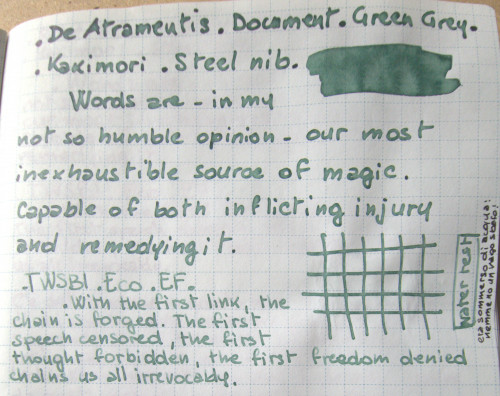 . De Atramentis . Document . Green Grey.
. Kakimori . Steel nib.
Words are - in my
not so humble opinion - our most
inexhaustible source of magic.
Capable of both inflicting injury
and remedying it.
. TWSBI . Eco . EF.
. With the first link, the
chain is forged. The first
speech censored, the first
thought forbidden, the first freedom denied
chains us all irrevocably.
Water test
era sommerso di acqua!
nemmeno un vago sbafo!